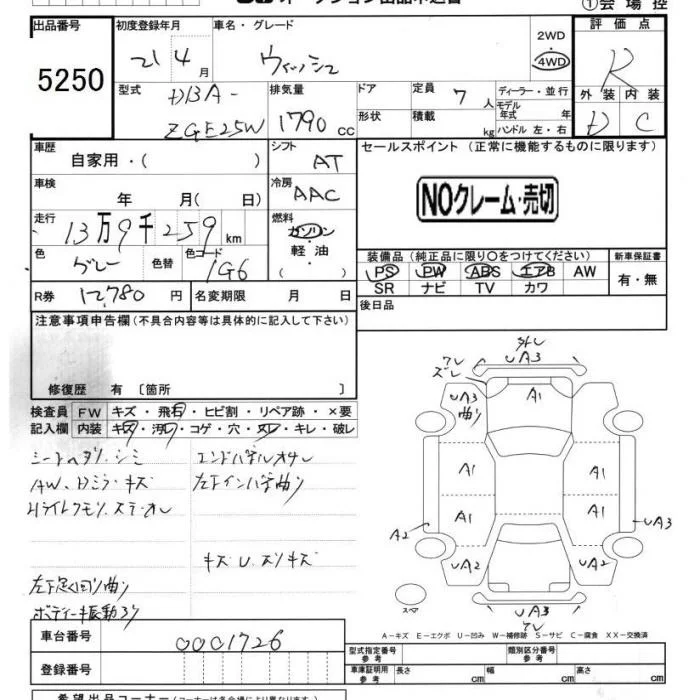 ①会場控
出品番号
5250
初度登録年月
21 4月
車名・グレード
ウィッシュ
2WD
・
4WD
評価点
R
型式
DBA-
ZGE25W
排気量
1790 cc
ドア
形状
定員 7 人
積載 kg
ディーラー・並行
モデル年式 年
ハンドル 左・右
外装 内装
D C
車歴
自家用・( )
シフト
AT
セールスポイント (正常に機能するものに限ります)
NOクレーム・売切
車検
年 月( 日)
冷房
AAC
走行
13万9千259 km
燃料
ガソリン
・
軽油
( )
色
グレー
色替
色コード
1G6
装備品 (純正品に限り○をつけてください)
PS PW ABS エアB AW
SR ナビ TV カワ
新車保証書
有・無
R券 12,780 円
名変期限 月 日
後日品
注意事項申告欄 (不具合内容等は具体的に記入して下さい)
修復歴 有 〔箇所 〕
検査員記入欄
FW キズ・飛石・ヒビ割・リペア跡・×要
内装 キズ・汚レ・コゲ・穴・スレ・キレ・破レ
AW、ドミラ・キズ
エンドパネルオサレ
左下インパネ曲り
キズ U. スリキズ
左下足回り曲り
ボディー振動あり
外レ
UA3
ズレ
A1
UA3
曲り
UA3
A1
A1
A1
A1
A2
UA3
UA2
UA2
UA3
スペア
A-キズ E-エクボ U-凹み W-補修跡 S-サビ C-腐食 XX-交換済
車台番号
0001726
登録番号
型式指定番号
参考
類別区分番号
参考
車庫証明用
参考
長さ cm
幅 cm
高さ cm
希望出品コーナー